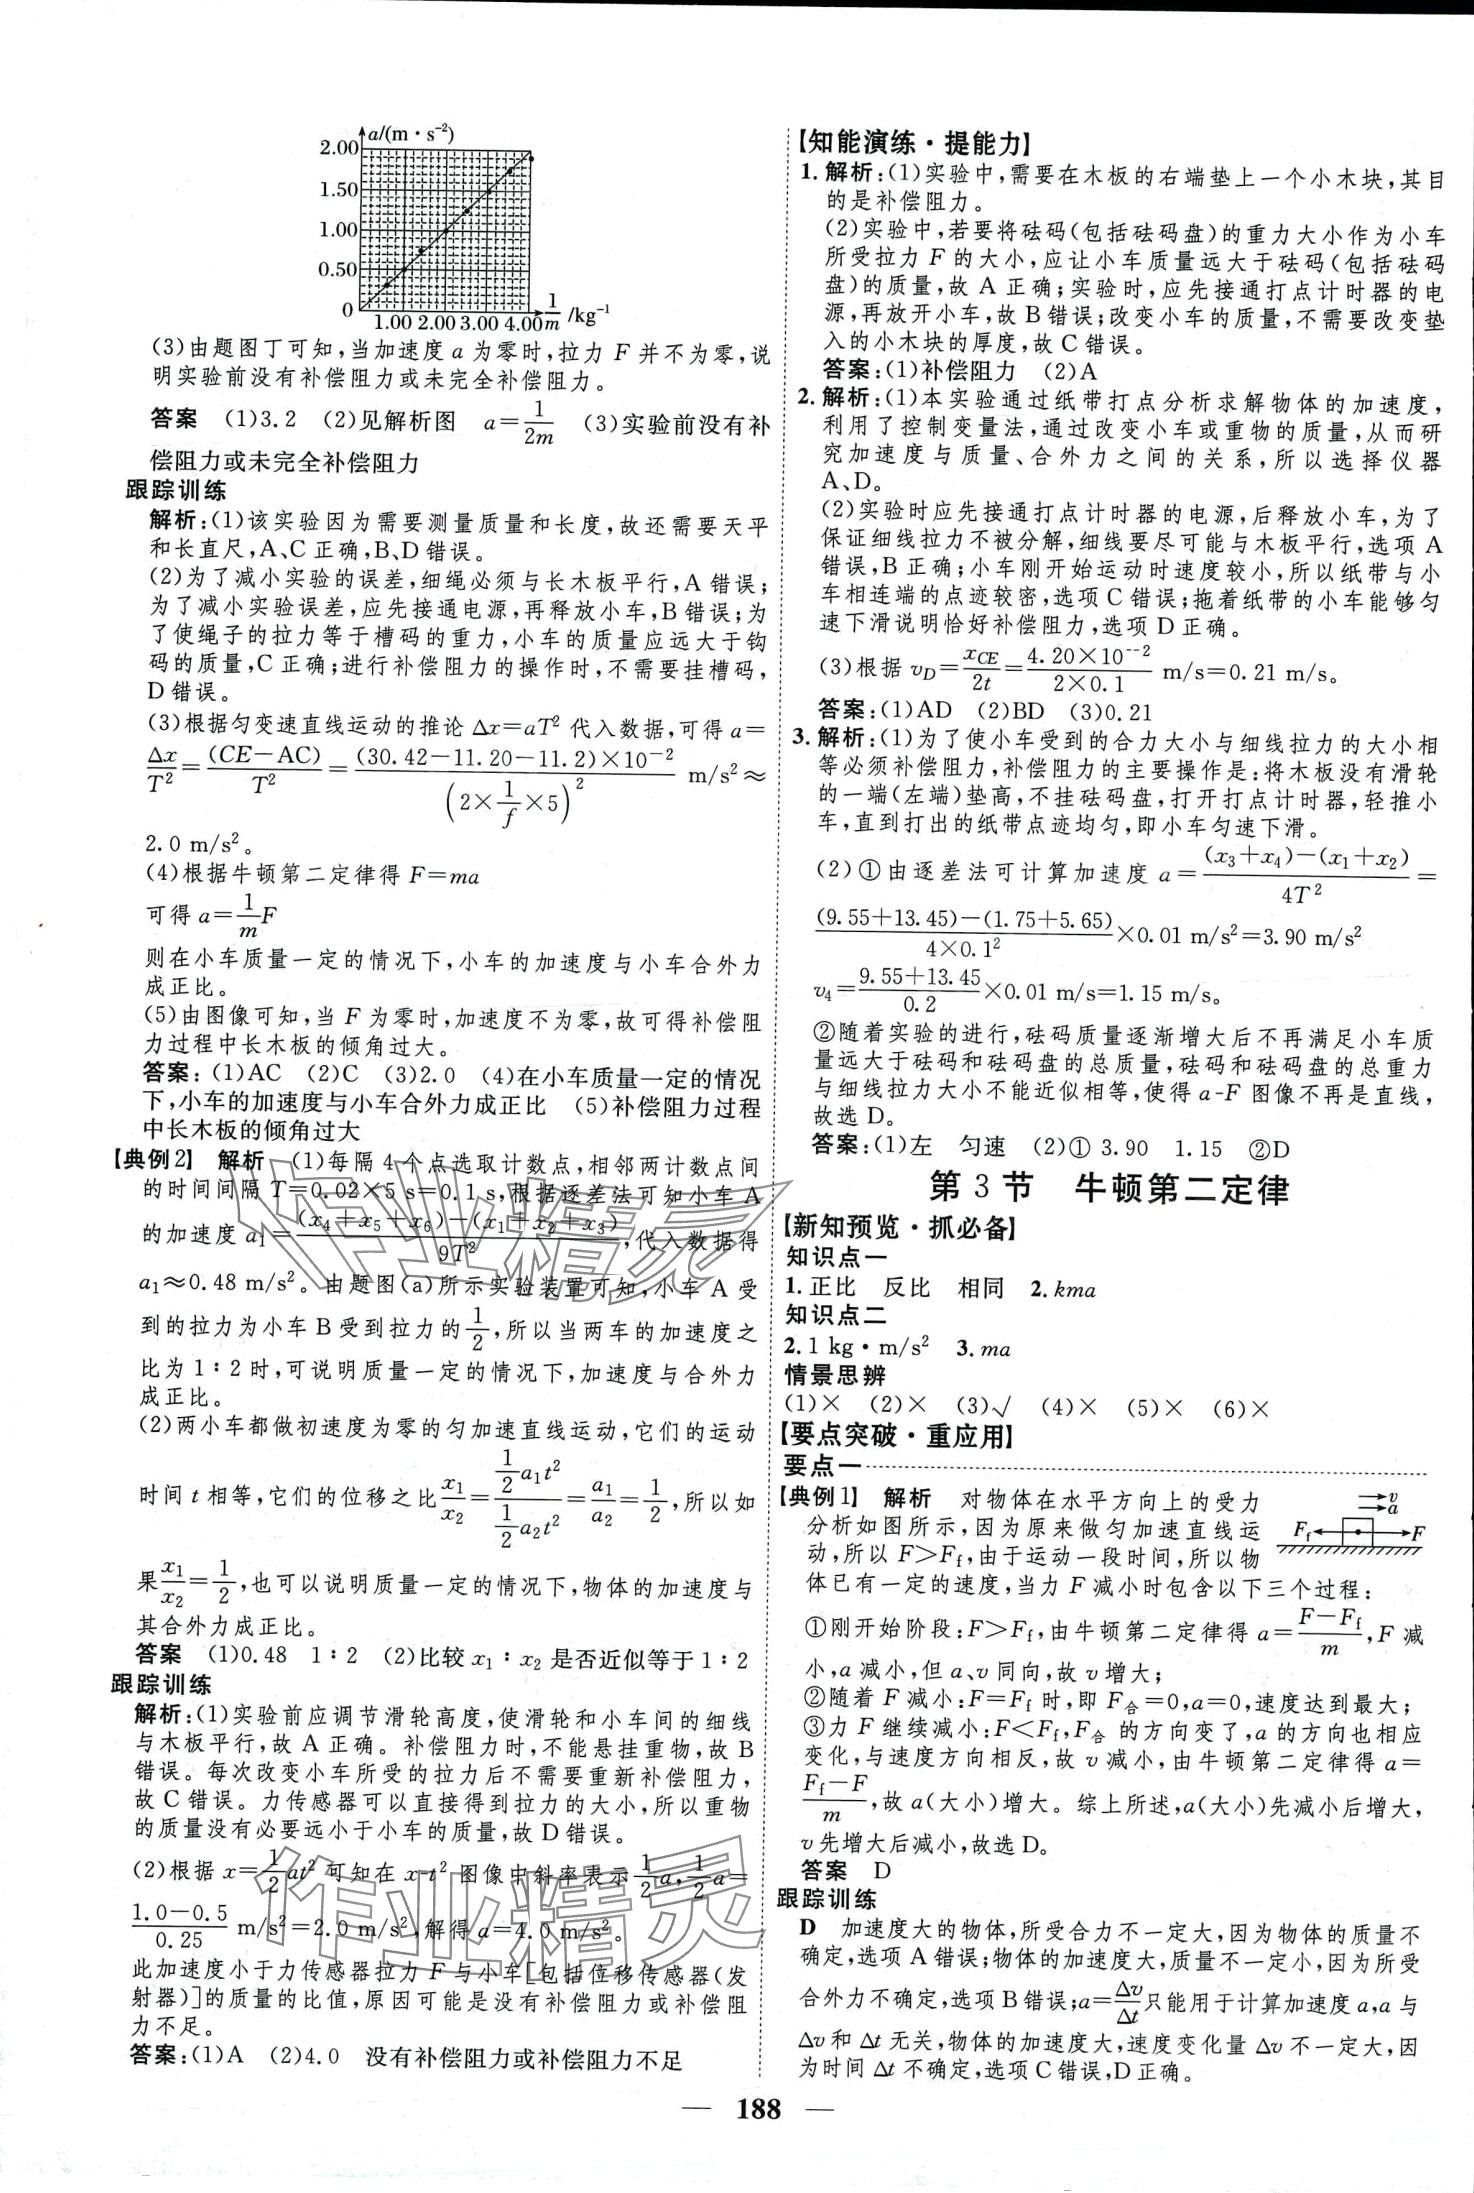 a/(m·s⁻²)
2.00
1.50
1.00
0.50
0
1.00 2.00 3.00 4.00 1/m /kg⁻¹
(3)由题图丁可知,当加速度 a 为零时,拉力 F 并不为零,说
明实验前没有补偿阻力或未完全补偿阻力。
答案 (1)3.2 (2)见解析图 a=1/2m (3)实验前没有补
偿阻力或未完全补偿阻力
跟踪训练
解析:(1)该实验因为需要测量质量和长度,故还需要天平
和长直尺,A、C正确,B、D错误。
(2)为了减小实验的误差,细绳必须与长木板平行,A错误;
为了减小实验误差,应先接通电源,再释放小车,B错误;为
了使绳子的拉力等于槽码的重力,小车的质量应远大于钩
码的质量,C正确;进行补偿阻力的操作时,不需要挂槽码,
D错误。
(3)根据匀变速直线运动的推论 Δx=aT² 代入数据,可得 a=
Δx/T²=(CE-AC)/T²=(30.42-11.20-11.2)×10⁻²/(2×1/f×5)² m/s²≈
2.0 m/s²。
(4)根据牛顿第二定律得 F=ma
可得 a=1/m F
则在小车质量一定的情况下,小车的加速度与小车合外力
成正比。
(5)由图像可知,当 F 为零时,加速度不为零,故可得补偿阻
力过程中长木板的倾角过大。
答案:(1)AC (2)C (3)2.0 (4)在小车质量一定的情况
下,小车的加速度与小车合外力成正比 (5)补偿阻力过程
中长木板的倾角过大
【典例2】 解析 (1)每隔4个点选取计数点,相邻两计数点间
的时间间隔 T=0.02×5 s=0.1 s,根据逐差法可知小车A
的加速度 a₁=(x₄+x₅+x₆)-(x₁+x₂+x₃)/9T²,代入数据得
a₁≈0.48 m/s²。由题图(a)所示实验装置可知,小车A受
到的拉力为小车B受到拉力的1/2,所以当两车的加速度之
比为1∶2时,可说明质量一定的情况下,加速度与合外力
成正比。
(2)两小车都做初速度为零的匀加速直线运动,它们的运动
时间 t 相等,它们的位移之比x₁/x₂=½a₁t²/½a₂t²=a₁/a₂=1/2,所以如
果x₁/x₂=1/2,也可以说明质量一定的情况下,物体的加速度与
其合外力成正比。
答案 (1)0.48 1∶2 (2)比较 x₁∶x₂ 是否近似等于1∶2
跟踪训练
解析:(1)实验前应调节滑轮高度,使滑轮和小车间的细线
与木板平行,故A正确。补偿阻力时,不能悬挂重物,故B
错误。每次改变小车所受的拉力后不需要重新补偿阻力,
故C错误。力传感器可以直接得到拉力的大小,所以重物
的质量没有必要远小于小车的质量,故D错误。
(2)根据 x=½at² 可知在 x-t² 图像中斜率表示½a,½a=
1.0-0.5/0.25 m/s²=2.0 m/s²,解得 a=4.0 m/s²。
此加速度小于力传感器拉力 F 与小车[包括位移传感器(发
射器)]的质量的比值,原因可能是没有补偿阻力或补偿阻
力不足。
答案:(1)A (2)4.0 没有补偿阻力或补偿阻力不足
【知能演练·提能力】
1.解析:(1)实验中,需要在木板的右端垫上一个小木块,其目
的是补偿阻力。
(2)实验中,若要将砝码(包括砝码盘)的重力大小作为小车
所受拉力 F 的大小,应让小车质量远大于砝码(包括砝码
盘)的质量,故A正确;实验时,应先接通打点计时器的电
源,再放开小车,故B错误;改变小车的质量,不需要改变垫
入的小木块的厚度,故C错误。
答案:(1)补偿阻力 (2)A
2.解析:(1)本实验通过纸带打点分析求解物体的加速度,
利用了控制变量法,通过改变小车或重物的质量,从而研
究加速度与质量、合外力之间的关系,所以选择仪器
A、D。
(2)实验时应先接通打点计时器的电源,后释放小车,为了
保证细线拉力不被分解,细线要尽可能与木板平行,选项A
错误,B正确;小车刚开始运动时速度较小,所以纸带与小
车相连端的点迹较密,选项C错误;拖着纸带的小车能够匀
速下滑说明恰好补偿阻力,选项D正确。
(3)根据 v_D=x_CE/2t=4.20×10⁻²/2×0.1 m/s=0.21 m/s。
答案:(1)AD (2)BD (3)0.21
3.解析:(1)为了使小车受到的合力大小与细线拉力的大小相
等必须补偿阻力,补偿阻力的主要操作是:将木板没有滑轮
的一端(左端)垫高,不挂砝码盘,打开打点计时器,轻推小
车,直到打出的纸带点迹均匀,即小车匀速下滑。
(2)①由逐差法可计算加速度 a=(x₃+x₄)-(x₁+x₂)/4T²=
(9.55+13.45)-(1.75+5.65)/4×0.1²×0.01 m/s²=3.90 m/s²
v₄=9.55+13.45/0.2×0.01 m/s=1.15 m/s。
②随着实验的进行,砝码质量逐渐增大后不再满足小车质
量远大于砝码和砝码盘的总质量,砝码和砝码盘的总重力
与细线拉力大小不能近似相等,使得 a-F 图像不再是直线,
故选D。
答案:(1)左 匀速 (2)①3.90 1.15 ②D
第3节 牛顿第二定律
【新知预览·抓必备】
知识点一
1.正比 反比 相同 2.kma
知识点二
2.1 kg·m/s² 3.ma
情景思辨
(1)× (2)× (3)√ (4)× (5)× (6)×
【要点突破·重应用】
要点一
【典例1】 解析 对物体在水平方向上的受力
分析如图所示,因为原来做匀加速直线运
动,所以 F>F_f,由于运动一段时间,所以物
体已有一定的速度,当力 F 减小时包含以下三个过程:
v
a
F_f F
①刚开始阶段:F>F_f,由牛顿第二定律得 a=F-F_f/m,F 减
小,a 减小,但 a、v 同向,故 v 增大;
②随着 F 减小:F=F_f 时,即 F合=0,a=0,速度达到最大;
③力 F 继续减小:F<F_f,F合 的方向变了,a 的方向也相应
变化,与速度方向相反,故 v 减小,由牛顿第二定律得 a=
F_f-F/m,故 a(大小)增大。综上所述,a(大小)先减小后增大,
v 先增大后减小,故选D。
答案 D
跟踪训练
D 加速度大的物体,所受合力不一定大,因为物体的质量不
确定,选项A错误;物体的加速度大,质量不一定小,因为所受
合外力不确定,选项B错误;a=Δv/Δt只能用于计算加速度 a,a 与
Δv 和 Δt 无关,物体的加速度大,速度变化量 Δv 不一定大,因
为时间 Δt 不确定,选项C错误,D正确。
— 188 —
作业精灵
作业精灵